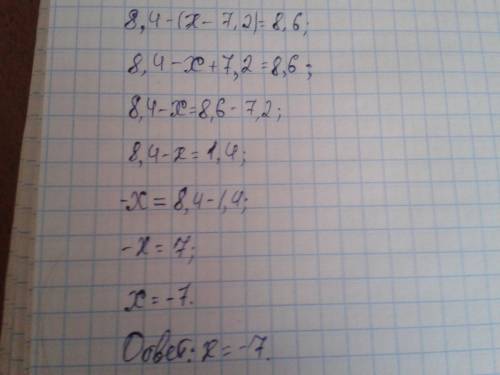 8,4-(x-7,2)=8,6;
8,4-x+7,2=8,6;
8,4-x=8,6-7,2;
8,4-x=1,4;
-x=8,4-1,4;
-x=7;
x=-7.
Ответ: x=-7.